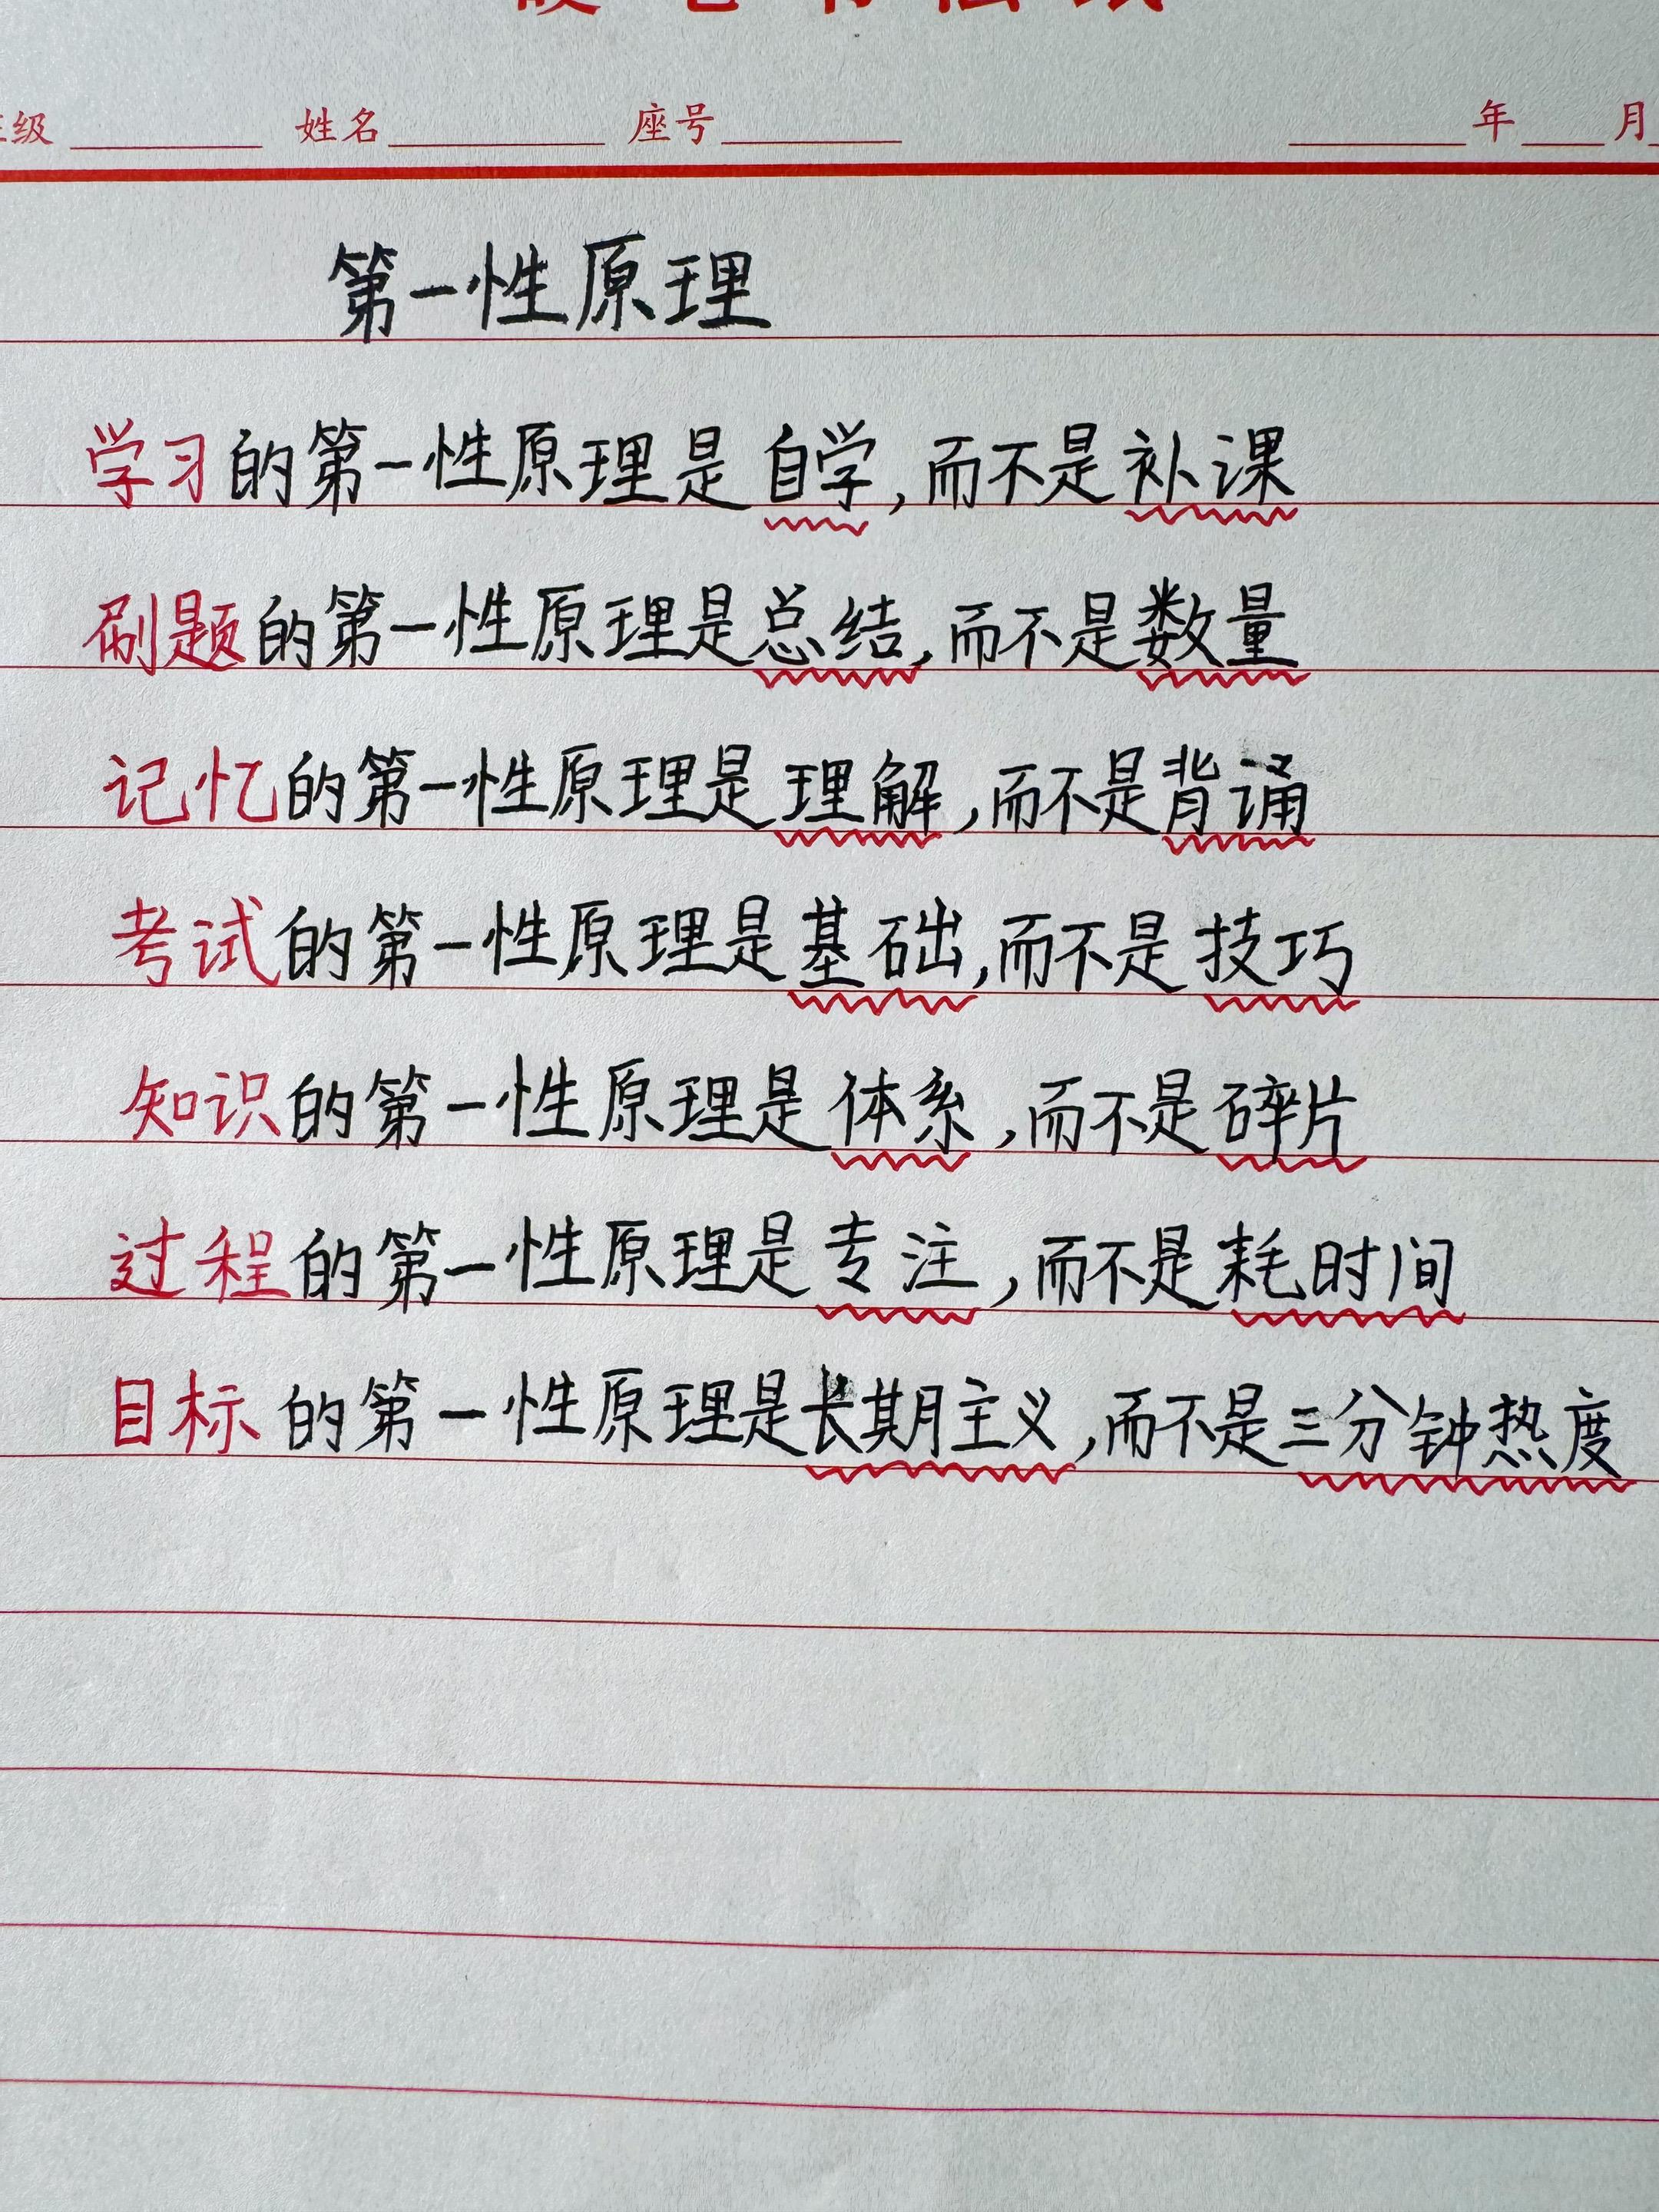 级 姓名 座号 年 月
第一性原理
学习的第一性原理是自学,而不是补课
刷题的第一性原理是总结,而不是数量
记忆的第一性原理是理解,而不是背诵
考试的第一性原理是基础,而不是技巧
知识的第一性原理是体系,而不是碎片
过程的第一性原理是专注,而不是耗时间
目标的第一性原理是长期主义,而不是三分钟热度